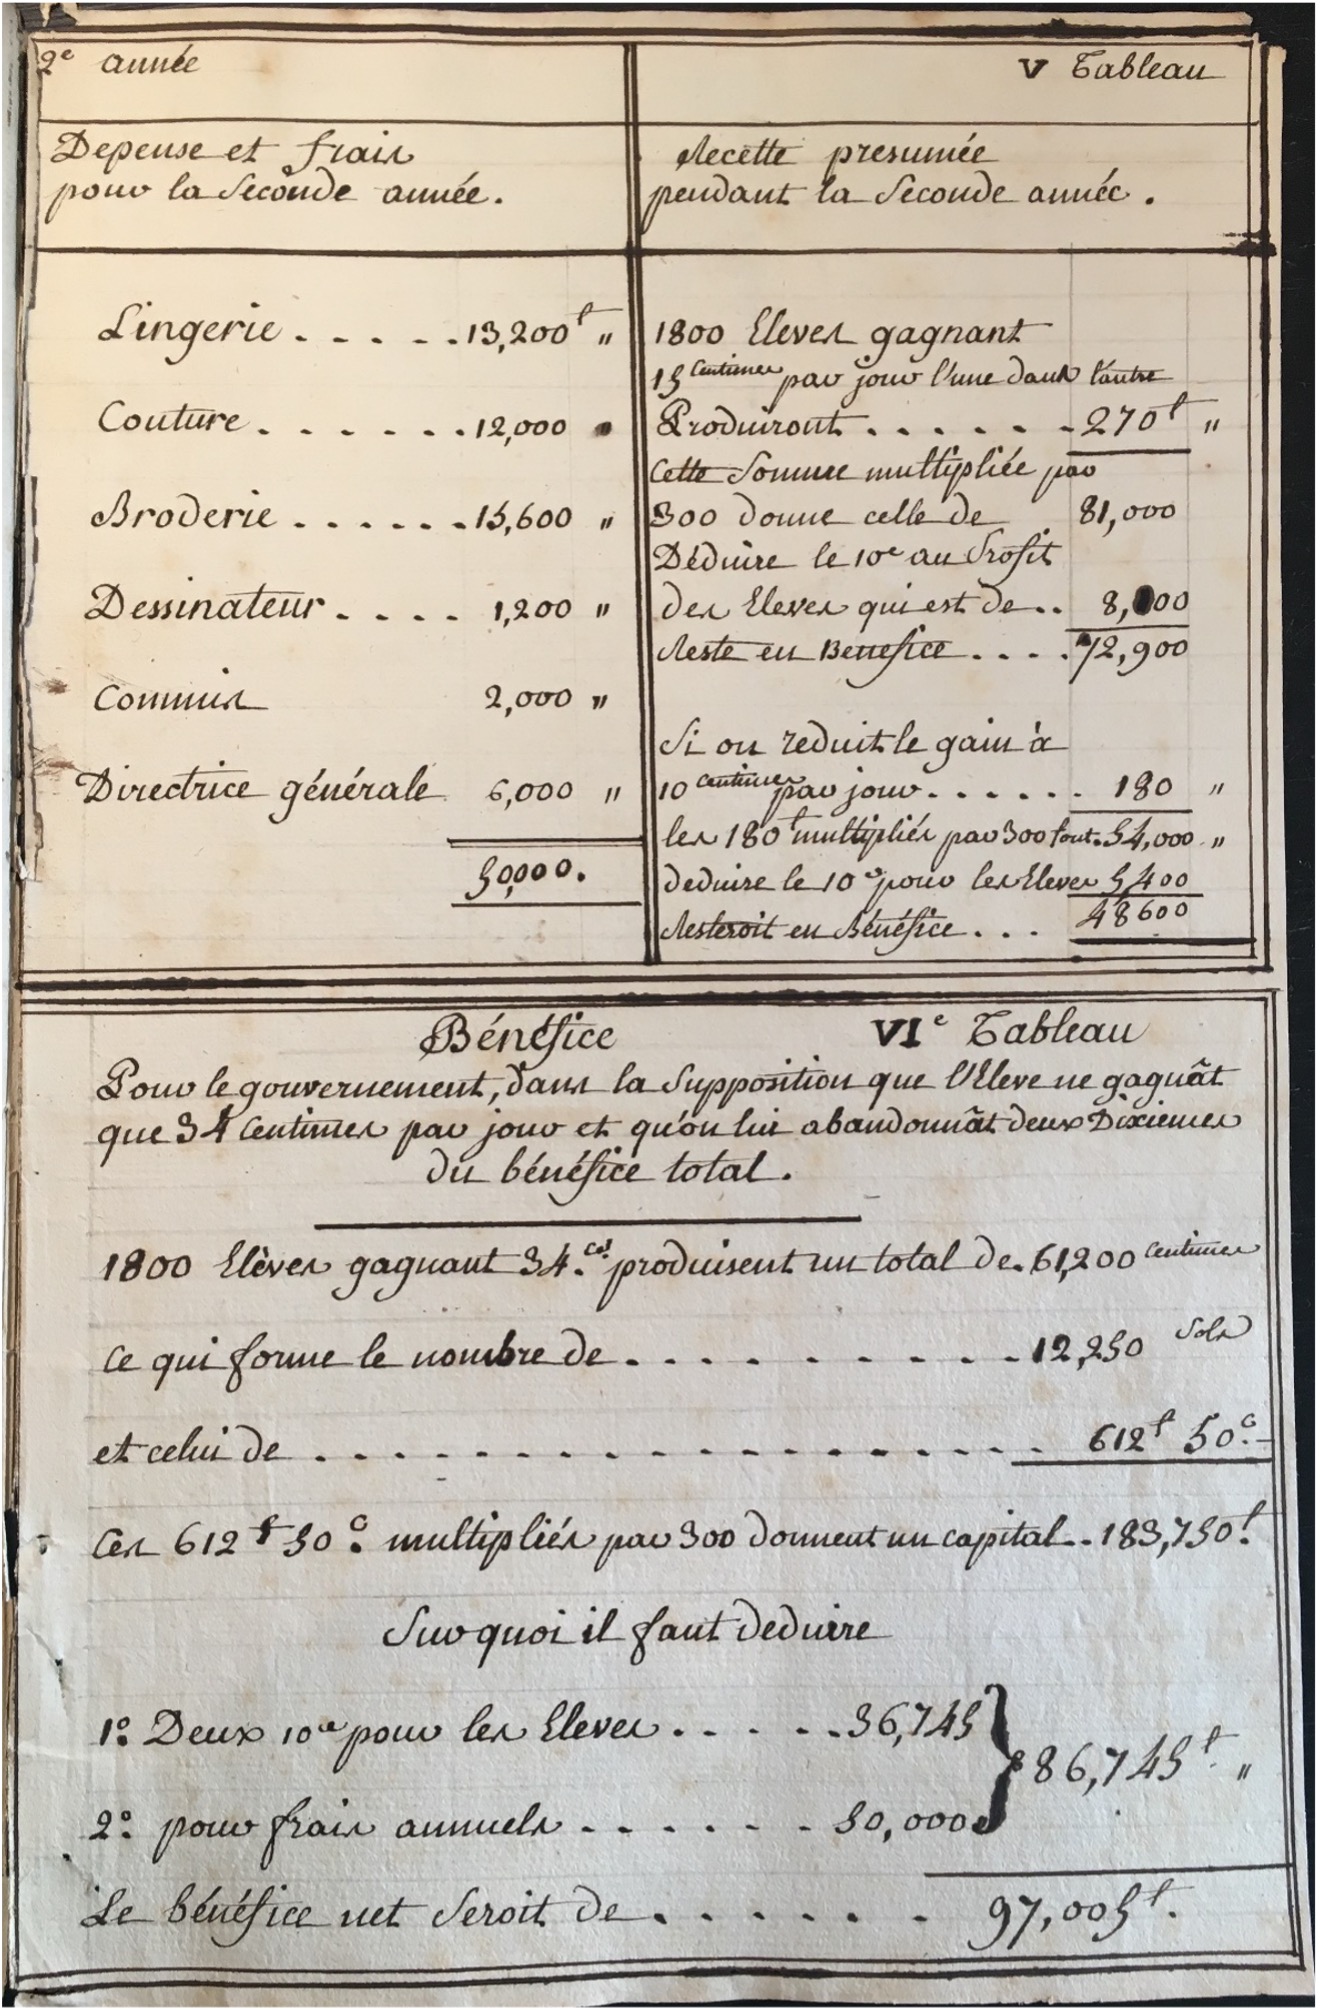 2e année
V Tableau
Depense et frais
pour la seconde année.
Recette presumée
pendant la seconde année.
Lingerie . . . . . 13,200f "
Couture . . . . . . . 12,000 "
Broderie . . . . . . 15,600 "
Dessinateur . . . . 1,200 "
Commis 2,000 "
Directrice générale 6,000 "
50,000.
1800 Eleves gagnant
15 Centimes par jour l'une dans l'autre
Produiront . . . . . . 270f "
Cette Somme multipliée par
300 donne celle de 81,000
Déduire le 10e au Profit
des Eleves qui est de .. 8,100
Reste en Benefice . . . . 72,900
Si on reduit le gain à
10 centimes par jour . . . . . . 180 "
les 180f multipliés par 300 font . 54,000 "
deduire le 10e pour les Eleves 5400
Resteroit en Bénéfice . . . 48600
Bénéfice VIe Tableau
Pour le gouvernement, dans la Supposition que l'Eleve ne gagnât
que 34 Centimes par jour et qu'on lui abandonnât deux Dixiemes
du bénéfice total.
1800 Elèves gagnant 34.ces produisent un total de . 61,200 centimes
ce qui forme le nombre de . . . . . . . . . . 12,250 Sols
et celui de . . . . . . . . . . . . . . . . . . 612f 50c.
Ces 612f 50c. multipliés par 300 donnent un capital .. 183,750f.
Sur quoi il faut Deduire
1º. Deux 10es pour les Eleves . . . . . 36,745
86,745f. "
2º. pour frais annuels . . . . . . 50,000
Le bénéfice net Seroit de . . . . . . 97,005f.